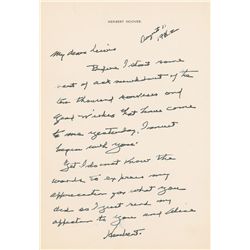 HERBERT HOOVER
Aug 11
My dear Lewis
Before I start some
sort of acknowledgment of the
ten thousand services and
good wishes that have come
to me yesterday, I must
begin with you.
Yet I do not know the
words to express my
appreciation for what you
did so I just send my
affection to you and
Herbert.